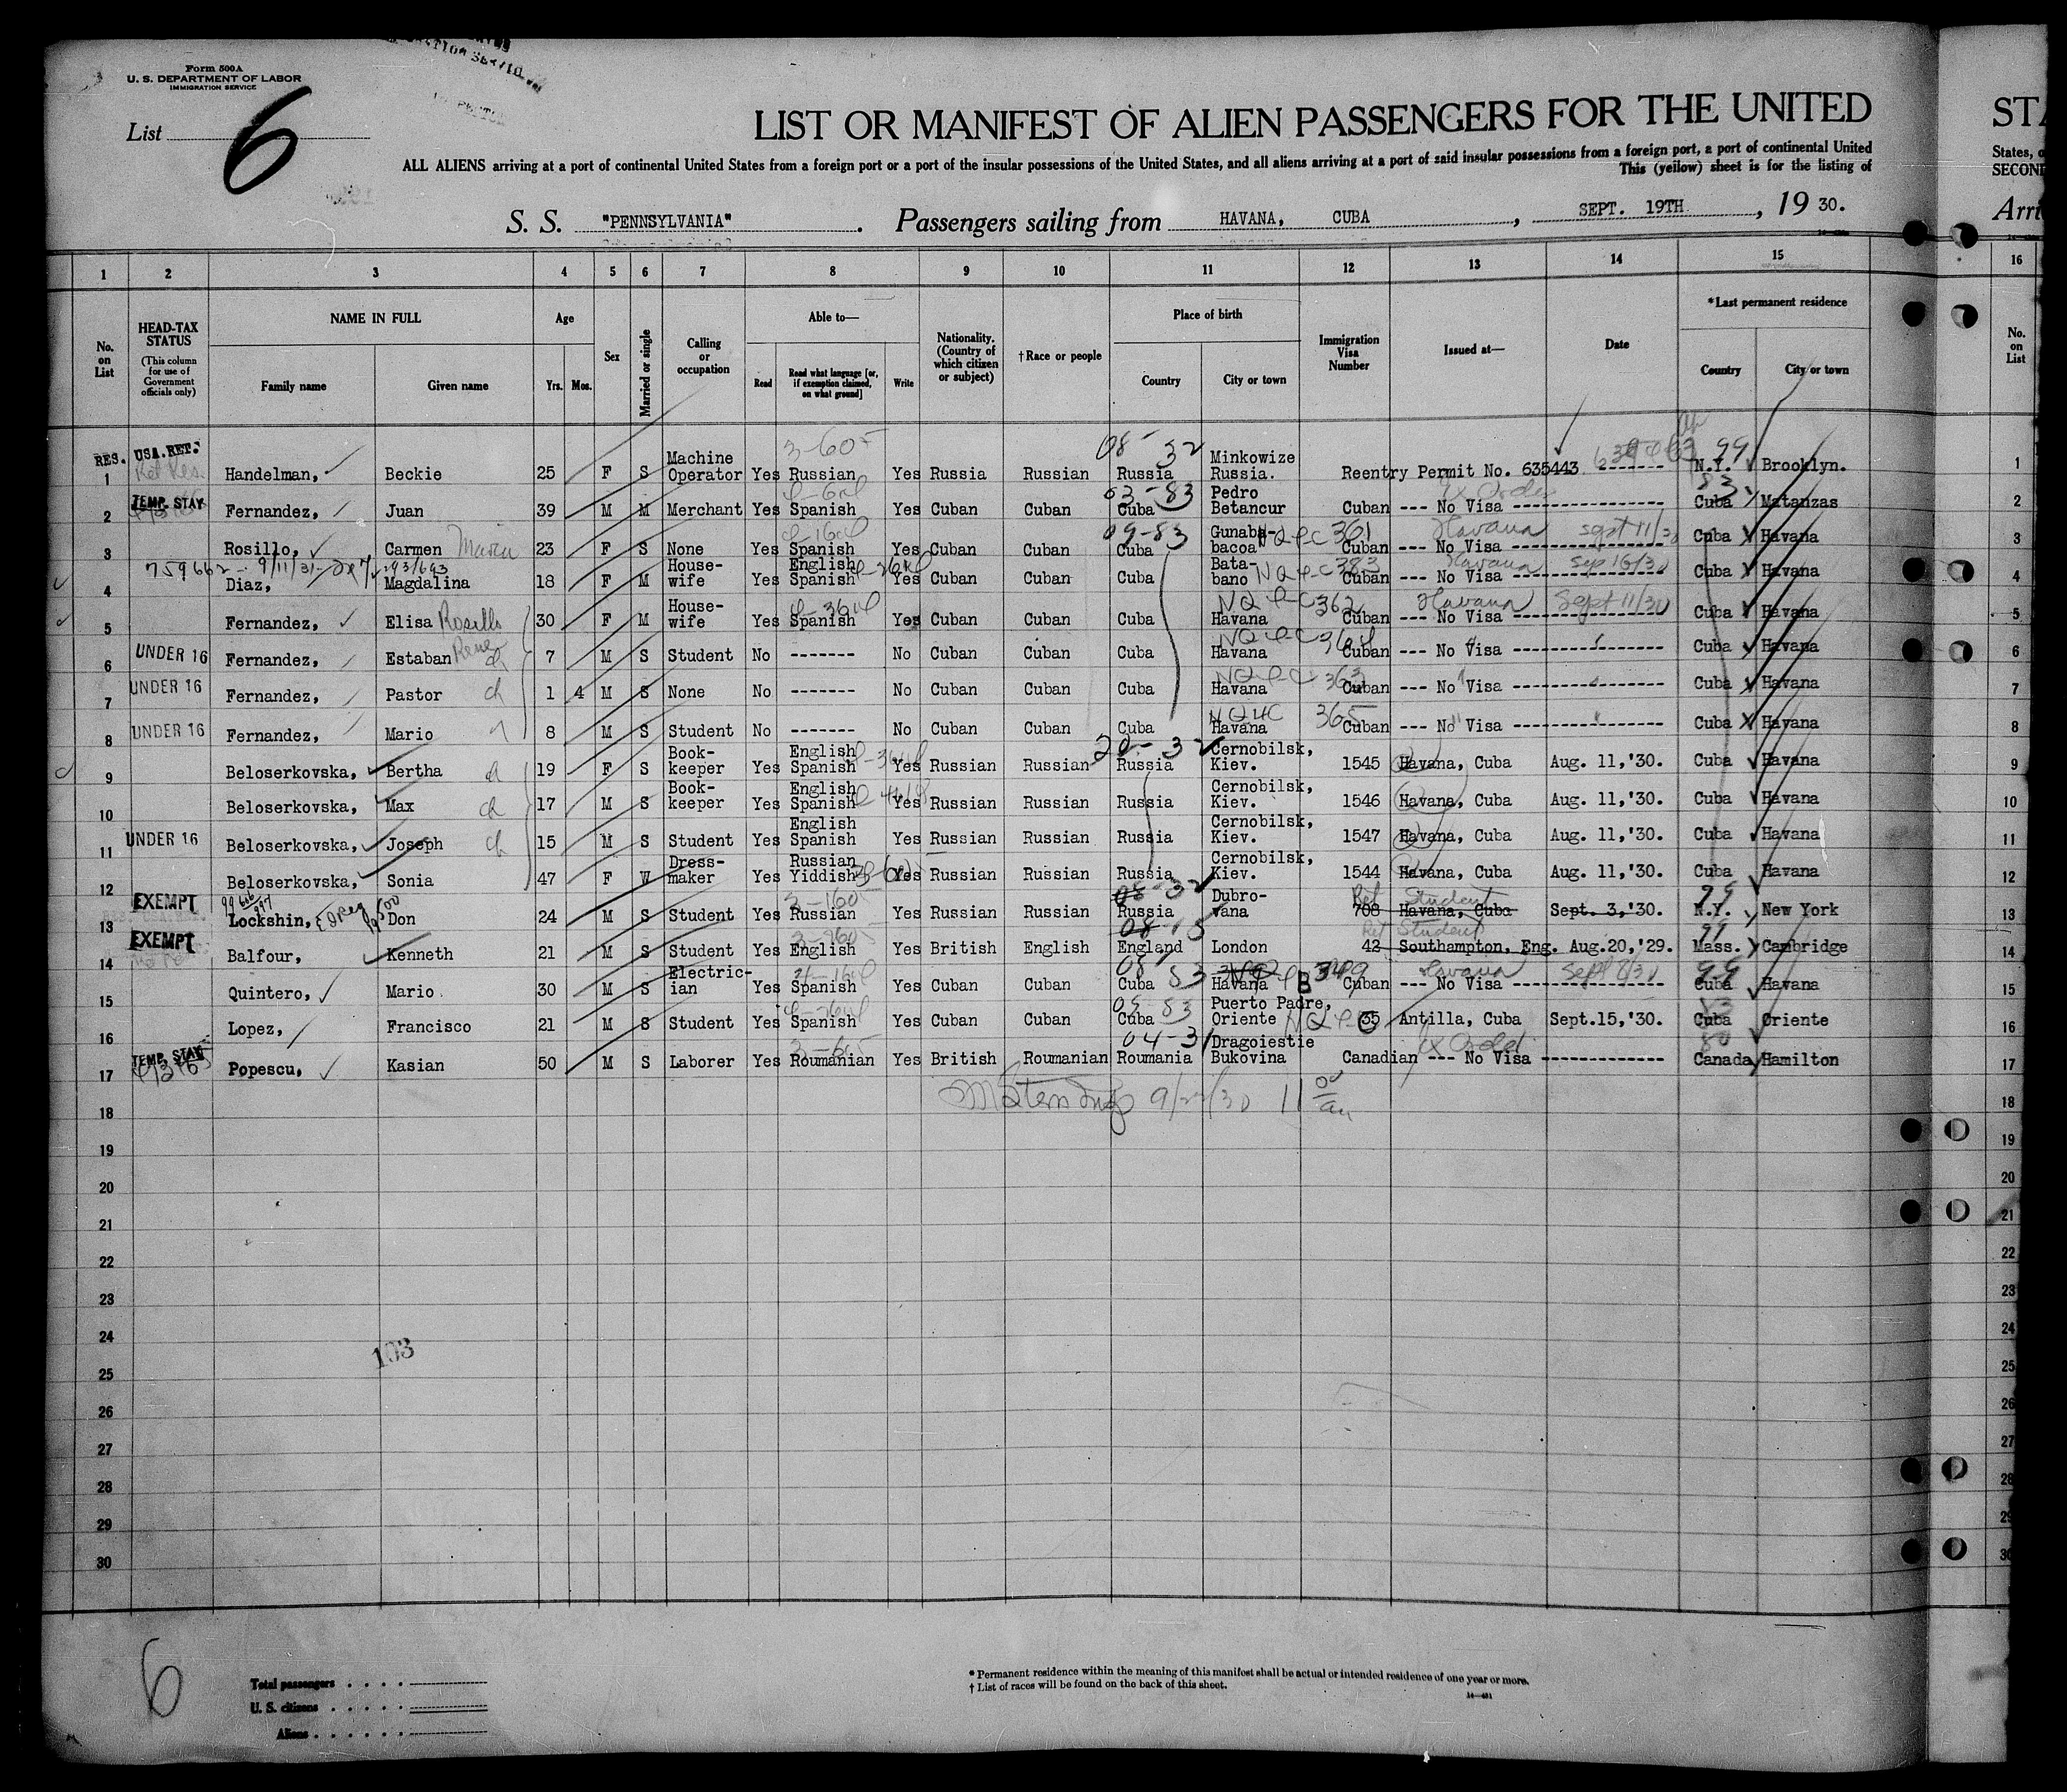 Form 500A
U. S. DEPARTMENT OF LABOR
IMMIGRATION SERVICE
List 6
LIST OR MANIFEST OF ALIEN PASSENGERS FOR THE UNITED
ALL ALIENS arriving at a port of continental United States from a foreign port or a port of the insular possessions of the United States, and all aliens arriving at a port of said insular possessions from a foreign port, a port of continental United
This (yellow) sheet is for the listing of
S. S. "PENNSYLVANIA" . Passengers sailing from HAVANA, CUBA , SEPT. 19TH , 19 30.
STA
States, o
SECOND
Arri
1 2 3 4 5 6 7 8 9 10 11 12 13 14 15 16
No. on List
HEAD-TAX STATUS (This column for use of Government officials only)
NAME IN FULL Family name Given name
Age Yrs. Mos.
Sex
Married or single
Calling or occupation
Able to— Read Read what language [or, if exemption claimed, on what ground] Write
Nationality. (Country of which citizen or subject)
†Race or people
Place of birth Country City or town
Immigration Visa Number
Issued at—
Date
*Last permanent residence Country City or town
No. on List
RES. USA. RET. 3-605 08-32 99
1 Handelman, Beckie 25 F S Machine Operator Yes Russian Yes Russia Russian Russia Minkowize Russia. Reentry Permit No. 635443 ------- N.Y. Brooklyn. 1
TEMP. STAY 03-83 83
2 Fernandez, Juan 39 M M Merchant Yes Spanish Yes Cuban Cuban Cuba Pedro Betancur Cuban --- No Visa ---------------- Cuba Matanzas 2
09-83 NQ4C 361 Havana Sept 11/30
3 Rosillo, Carmen Maria 23 F S None Yes Spanish Yes Cuban Cuban Cuba Gunaba-bacoa Cuban --- No Visa ---------------- Cuba Havana 3
759662 - 9/11/31 NQ4-C383 Havana Sep 16/30
4 Diaz, Magdalina 18 F M House-wife Yes English Spanish Yes Cuban Cuban Cuba Bata-bano Cuban --- No Visa ---------------- Cuba Havana 4
NQ4-C362 Havana Sept 11/30
5 Fernandez, Elisa Rosillo 30 F M House-wife Yes Spanish Yes Cuban Cuban Cuba Havana Cuban --- No Visa ---------------- Cuba Havana 5
NQ4-C364
6 UNDER 16 Fernandez, Estaban Rene ch 7 M S Student No ------- No Cuban Cuban Cuba Havana Cuban --- No Visa ---------------- Cuba Havana 6
NQ4-C363
7 UNDER 16 Fernandez, Pastor ch 1 4 M S None No ------- No Cuban Cuban Cuba Havana Cuban --- No Visa ---------------- Cuba Havana 7
NQ4C 365
8 UNDER 16 Fernandez, Mario 8 M S Student No ------- No Cuban Cuban Cuba Havana Cuban --- No Visa ---------------- Cuba Havana 8
9 Beloserkovska, Bertha ch 19 F S Book-keeper Yes English Spanish Yes Russian Russian Russia Cernobilsk, Kiev. 1545 Havana, Cuba Aug. 11,'30. Cuba Havana 9
10 Beloserkovska, Max ch 17 M S Book-keeper Yes English Spanish Yes Russian Russian Russia Cernobilsk, Kiev. 1546 Havana, Cuba Aug. 11,'30. Cuba Havana 10
11 UNDER 16 Beloserkovska, Joseph ch 15 M S Student Yes English Spanish Yes Russian Russian Russia Cernobilsk, Kiev. 1547 Havana, Cuba Aug. 11,'30. Cuba Havana 11
12 Beloserkovska, Sonia 47 F W Dress-maker Yes Russian Yiddish Yes Russian Russian Russia Cernobilsk, Kiev. 1544 Havana, Cuba Aug. 11,'30. Cuba Havana 12
EXEMPT 3-1605 08-32 Ret Student 99
13 Lockshin, Don 24 M S Student Yes Russian Yes Russian Russian Russia Dubro-vana 708 Havana, Cuba Sept. 3,'30. N.Y. New York 13
EXEMPT 08-15 Ret Student 99
14 Balfour, Kenneth 21 M S Student Yes English Yes British English England London 42 Southampton, Eng. Aug.20,'29. Mass. Cambridge 14
83 349 Havana Sept 8/30
15 Quintero, Mario 30 M S Electric-ian Yes Spanish Yes Cuban Cuban Cuba Havana Cuban --- No Visa ---------------- Cuba Havana 15
83
16 Lopez, Francisco 21 M S Student Yes Spanish Yes Cuban Cuban Cuba Puerto Padre, Oriente 35 Antilla, Cuba Sept.15,'30. Cuba Oriente 16
TEMP. STAY 04-31 80
17 Popescu, Kasian 50 M S Laborer Yes Roumanian Yes British Roumanian Roumania Dragoiestie Bukovina Canadian --- No Visa ------------- Canada Hamilton 17
9/22/30 11 00 am
18 18
19 19
20 20
21 21
22 22
23 23
24 24
103
25 25
26 26
27 27
28 28
29 29
30 30
6
Total passengers
U. S. citizens
Aliens
* Permanent residence within the meaning of this manifest shall be actual or intended residence of one year or more.
† List of races will be found on the back of this sheet.